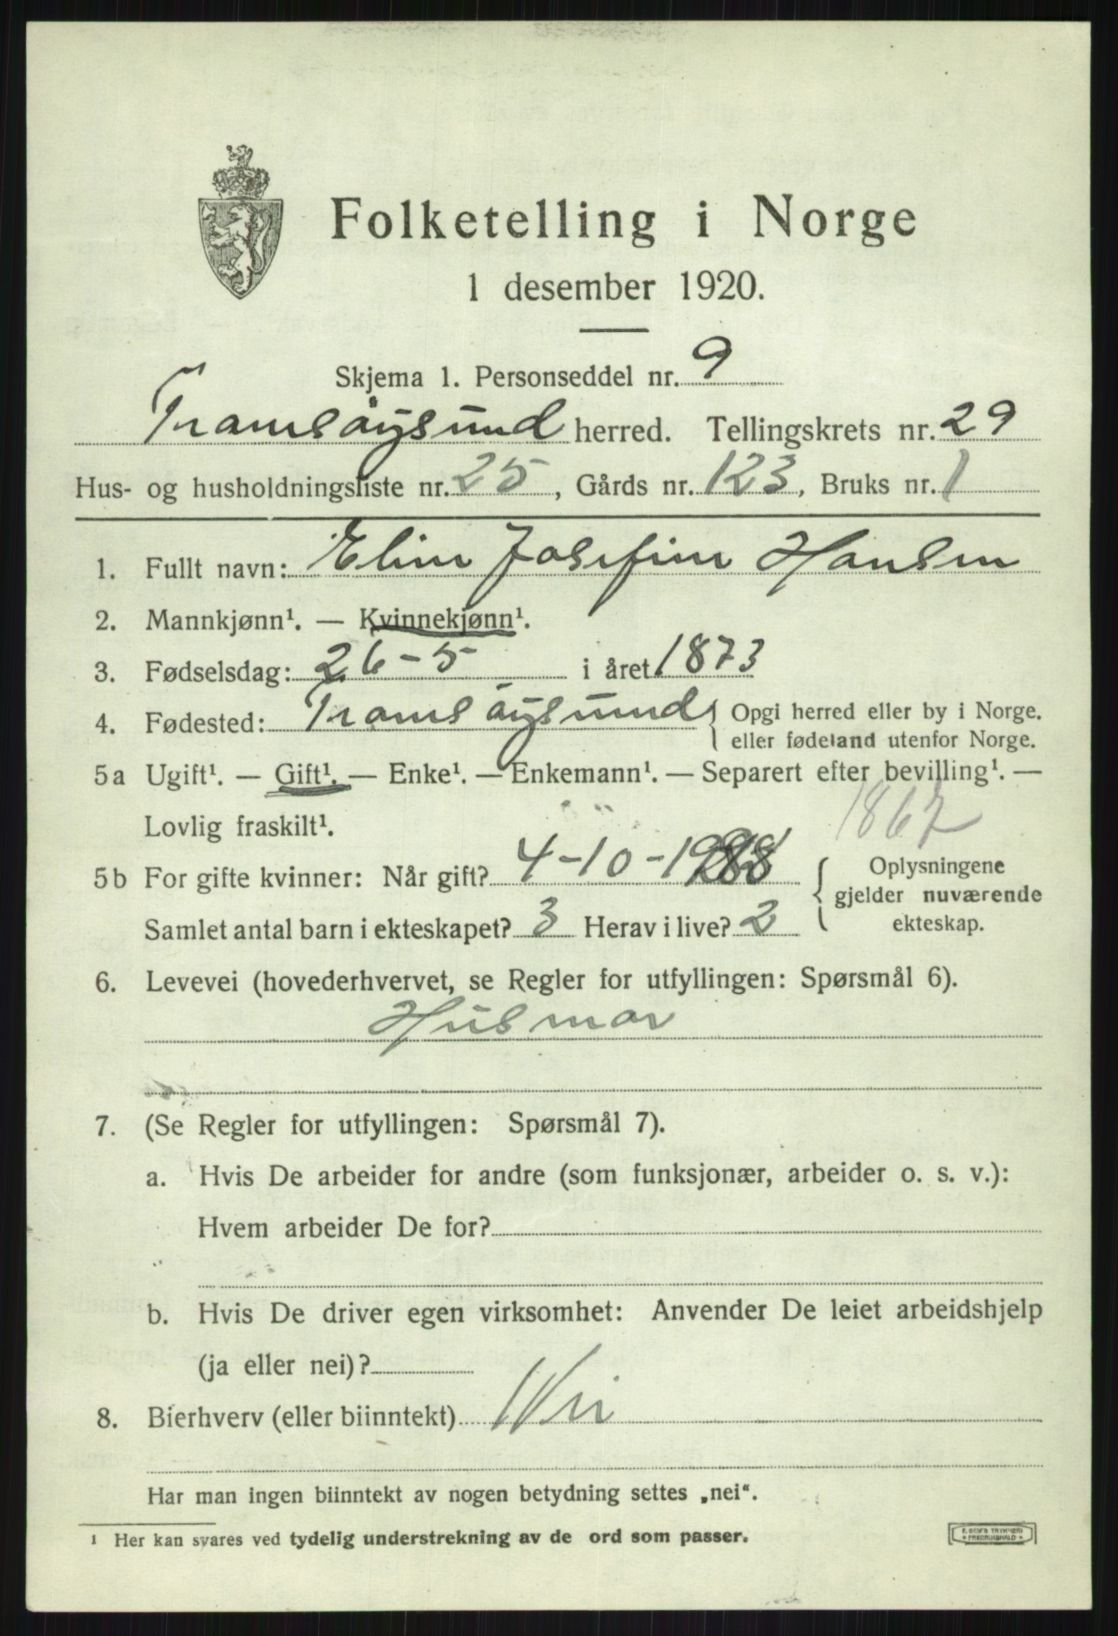 Folketelling i Norge
1 desember 1920.
Skjema 1. Personseddel nr. 9
Tromsøysund herred. Tellingskrets nr. 29
Hus- og husholdningsliste nr. 25, Gårds nr. 123, Bruks nr. 1
1. Fullt navn: Elin Josefine Hansen
2. Mannkjønn¹. — Kvinnekjønn¹.
3. Fødselsdag: 26-5 i året 1873
4. Fødested: Tromsøysund Opgi herred eller by i Norge.
eller fødeland utenfor Norge.
5a Ugift¹. — Gift¹. — Enke¹. — Enkemann¹. — Separert efter bevilling¹. —
Lovlig fraskilt¹.
1867
5b For gifte kvinner: Når gift? 4-10- Oplysningene
gjelder nuværende
Samlet antal barn i ekteskapet? 3 Herav i live? 2 ekteskap.
6. Levevei (hovederhvervet, se Regler for utfyllingen: Spørsmål 6).
Husmor
7. (Se Regler for utfyllingen: Spørsmål 7).
a. Hvis De arbeider for andre (som funksjonær, arbeider o. s. v.):
Hvem arbeider De for?
b. Hvis De driver egen virksomhet: Anvender De leiet arbeidshjelp
(ja eller nei)?
8. Bierhverv (eller biinntekt) Nei
Har man ingen biinntekt av nogen betydning settes „nei“.
¹ Her kan svares ved tydelig understrekning av de ord som passer.